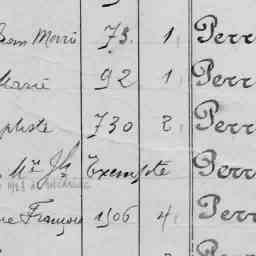 Jean Morin 73 1 Perr
Marie 92 1 Perr
ptiste 730 2 Perr
Mn Jh Exempte Perr
ne François 1506 4 Perr